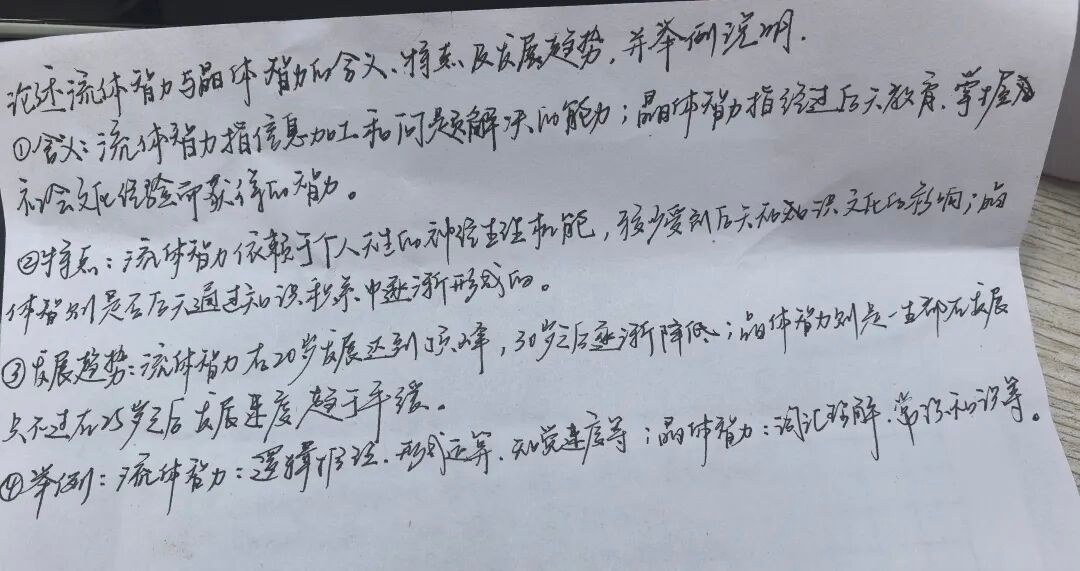 论述流体智力与晶体智力的含义、特点及发展趋势，并举例说明.
①含义：流体智力指信息加工和问题解决的能力；晶体智力指经过后天教育、掌握
社会文化经验而获得的智力。
②特点：流体智力依赖于个人天生的神经生理机能，较少受到后天和知识文化的影响；晶
体智则是后天通过知识积累中逐渐形成的。
③发展趋势：流体智力在20岁发展达到顶峰，30岁之后逐渐降低；晶体智力则是一生都在发展
只不过在25岁之后发展速度趋于平缓。
④举例：流体智力：逻辑推理、形式运算、知觉速度等；晶体智力：词汇理解、常识知识等。